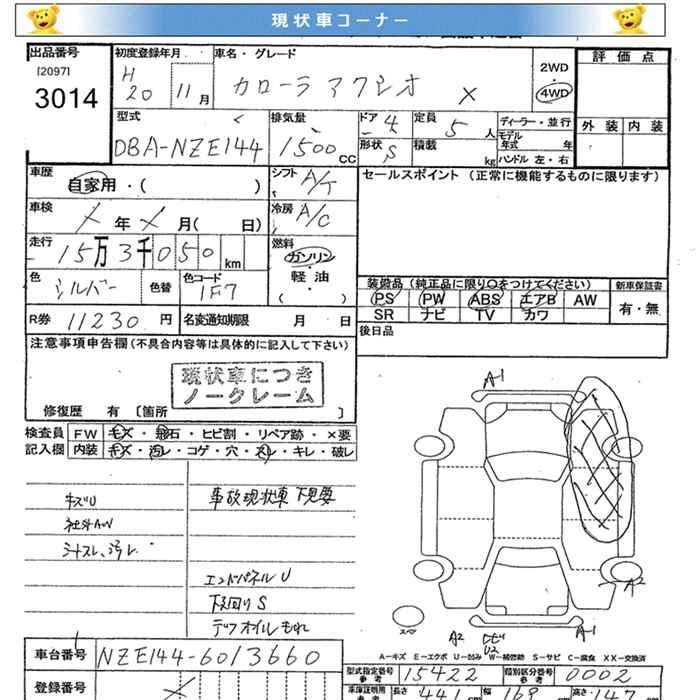 現状車コーナー
出品番号
[2097]
3014
初度登録年月
H 20 11月
車名・グレード
カローラ アクシオ X
2WD
4WD
評価点
外装 内装
型式
DBA-NZE144
排気量
1500 CC
ドア 4
形状 S
定員 5 人
積載 kg
ディーラー・並行
モデル年式 年
ハンドル 左・右
車歴
自家用・( )
シフト A/T
セールスポイント(正常に機能するものに限ります)
車検
年 月( 日)
冷房 A/C
走行
15万3千050 km
燃料
ガソリン
軽油
( )
色
シルバー
色替
色コード
1F7
装備品(純正品に限り○をつけてください)
新車保証書
PS PW ABS エアB AW
有・無
SR ナビ TV カワ
R券 11230 円
名変通知期限 月 日
後日品
注意事項申告欄(不具合内容等は具体的に記入して下さい)
現状車につき
ノークレーム
修復歴 有 〔箇所 〕
検査員
記入欄
FW キズ・飛石・ヒビ割・リペア跡・×要
内装 キズ・汚レ・コゲ・穴・スレ・キレ・破レ
キズU
社外AW
シートスレ、汚レ
事故現状車 下見要
エンドパネルU
下回りS
デフオイルもれ
A-1
A2
スペア
A2
U2
A-キズ E-エクボ U-凹み W-補修跡 S-サビ C-腐食 XX-交換済
車台番号 NZE144-6013660
型式指定番号 参考 15422
類別区分番号 参考 0002
登録番号
車庫証明用 長さ 441 幅 168 高さ 147